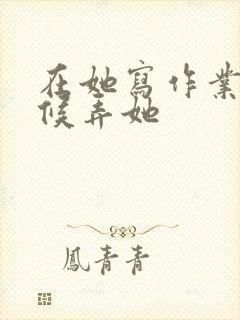 在她寫作業
候弄她
鳳青青